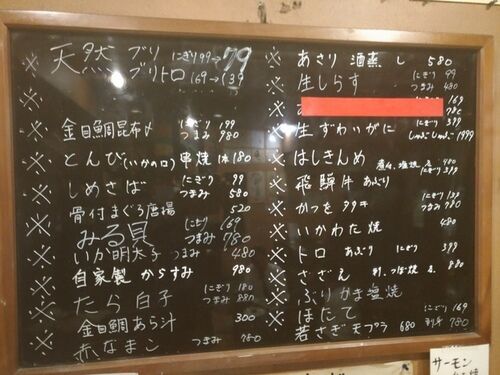 ※ 天然 ブリ にぎり 99→79
ブリトロ 〃 169→139
※ 金目鯛昆布〆 にぎり 199
つまみ 980
※ とんび(いかの口) 串焼 1本 180
※ しめさば にぎり 99
つまみ 580
※ 骨付まぐろ唐揚 520
※ みる貝 にぎり 169
つまみ 780
※ いか明太子 つまみ 480
※ 自家製 からすみ 980
※ たら白子 にぎり 180
つまみ 880
※ 金目鯛あら汁 300
※ 赤なまこ つまみ 780
※ あさり 酒蒸し 580
※ 生しらす にぎり 99
つまみ 480
※ 169
780
※ 生ずわいがに にぎり 399
しゃぶしゃぶ 1999
※ はしきんめ 煮付,塩焼 各 480
にぎり 399
※ 飛騨牛 あぶり
※ かつをタタキ にぎり 139
つまみ 780
※ いかわた焼 480
※ トロ あぶり にぎり 399
※ さざえ 刺,つぼ焼 各 880
※ ぶりかま塩焼
※ ほたて にぎり 169
※ 若さぎ天プラ 680 刺身 780
サーモン